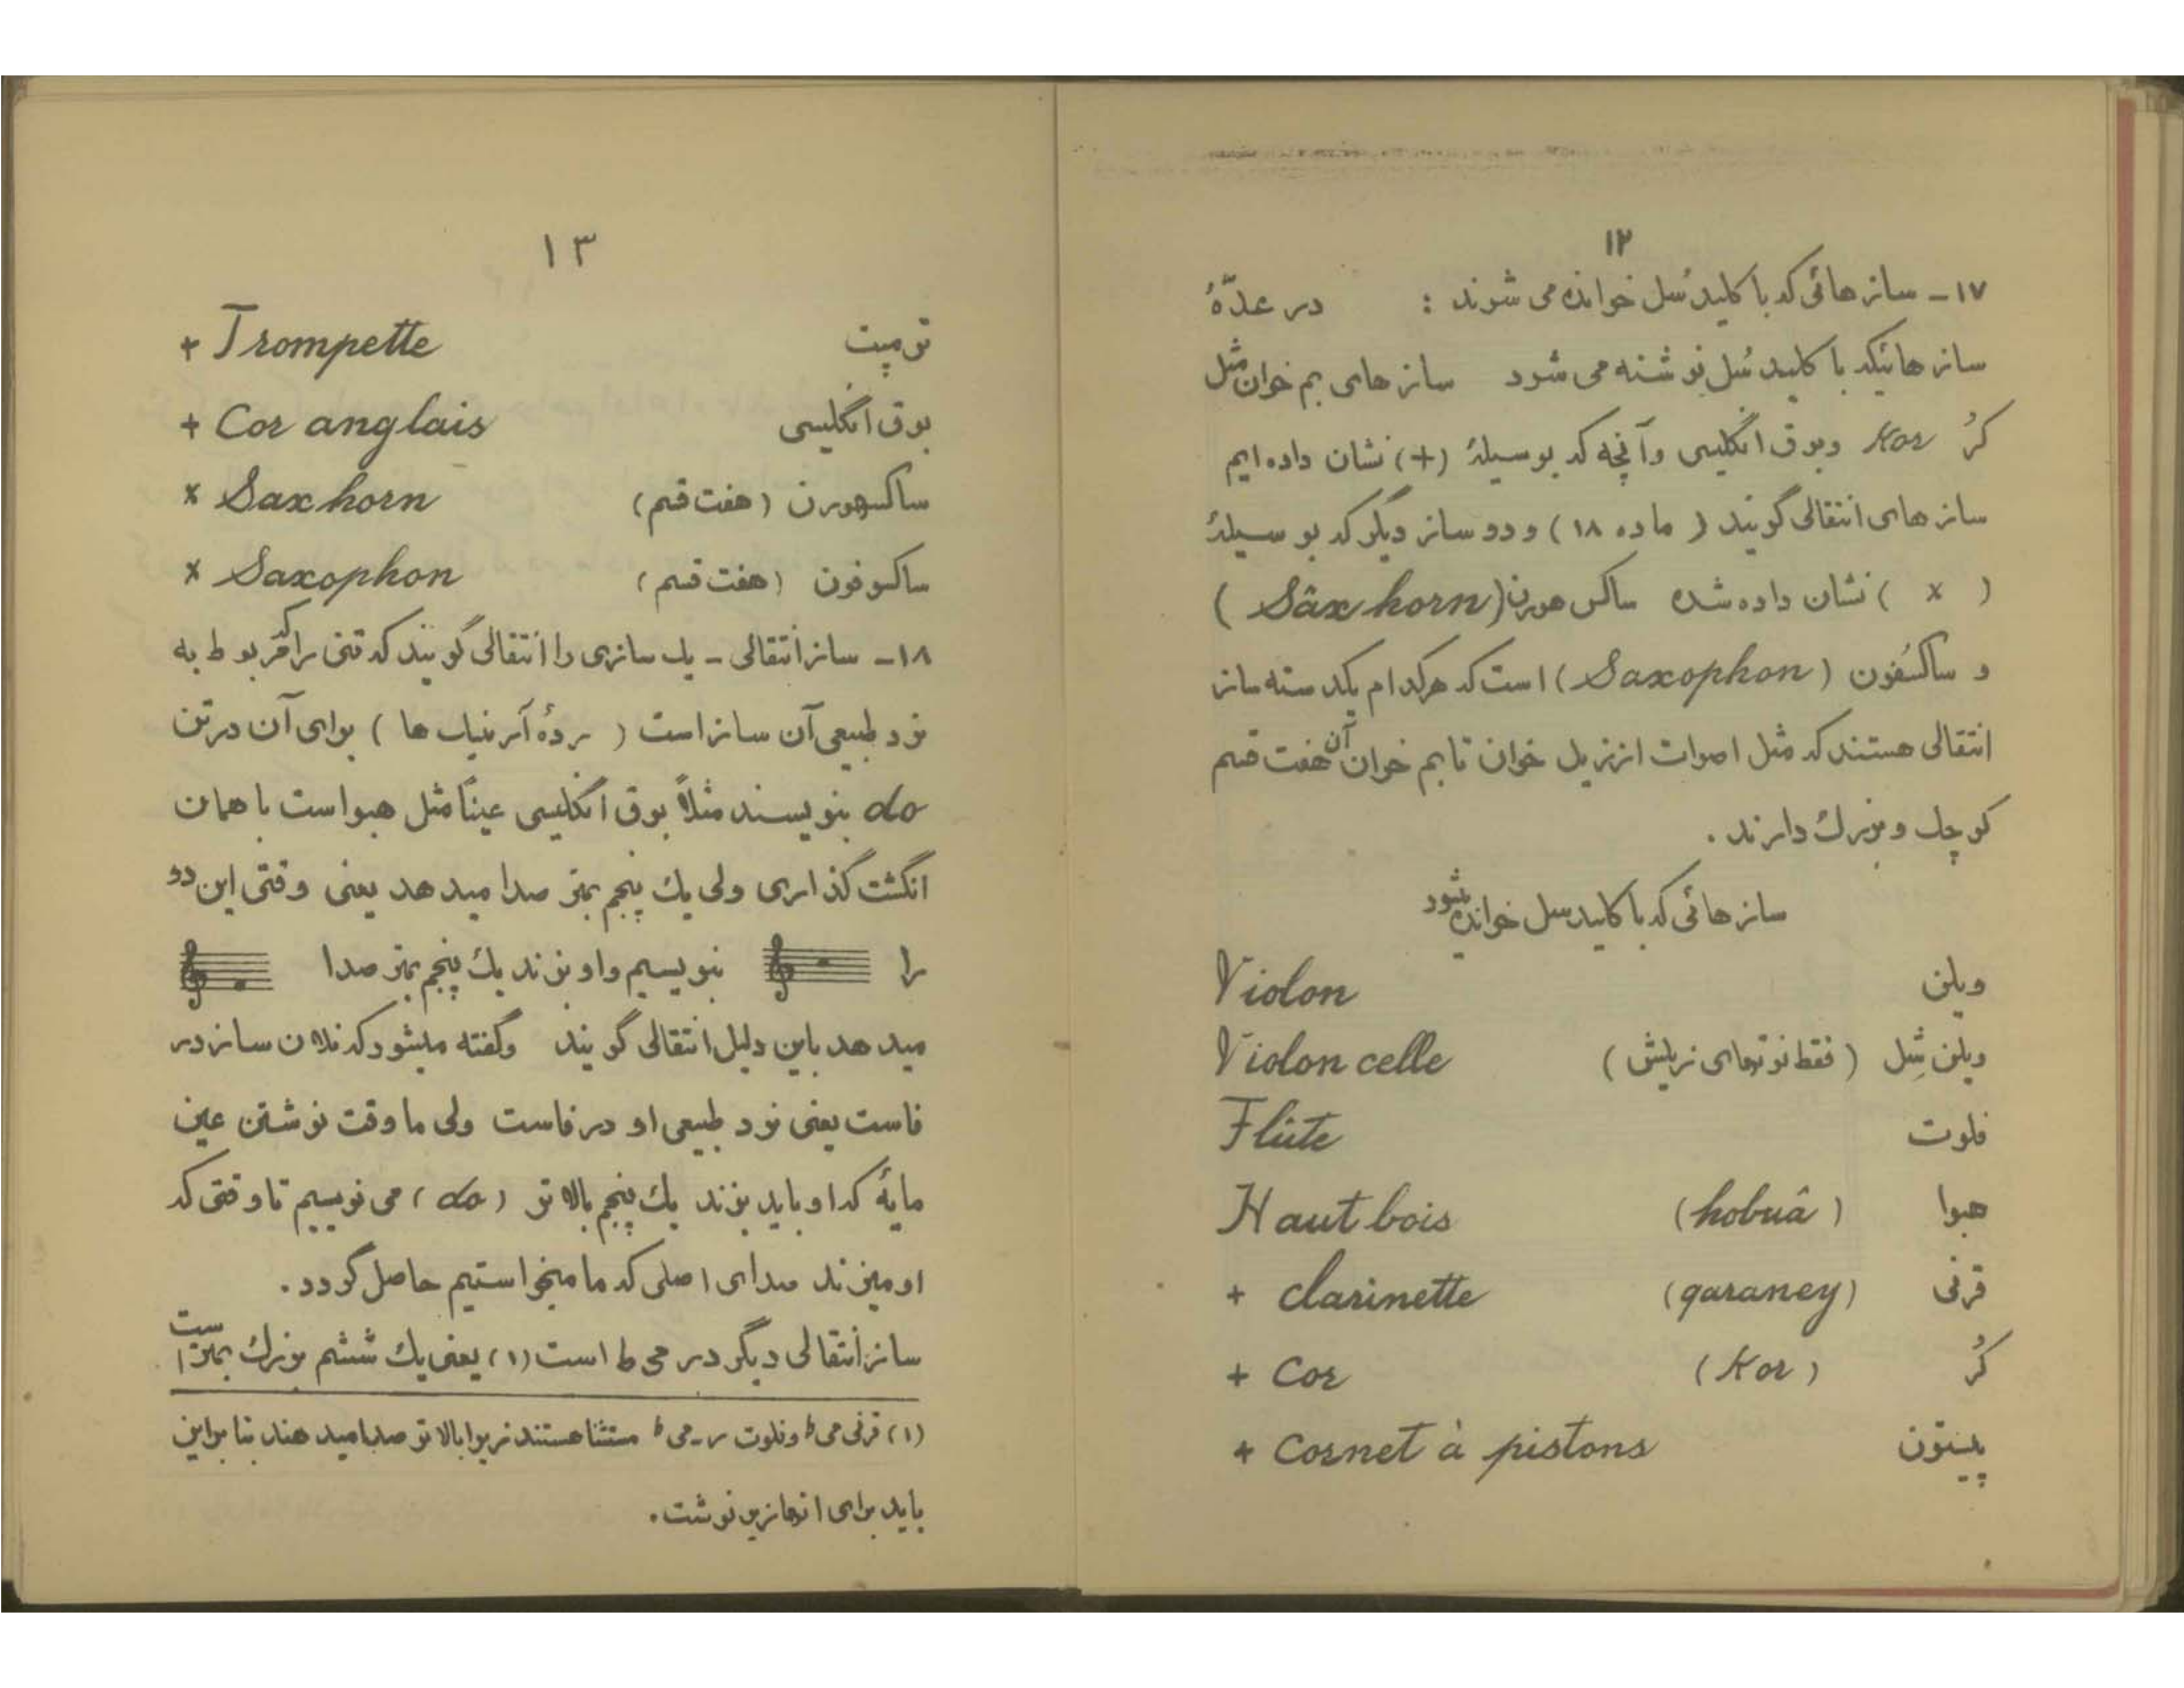 ۱۲
۱۷ - ساز هائی که با کلید سُل خوانده می شوند : در عدّهٔ
ساز هائیکه با کلید سُل نوشته می شود ساز های بم خوان مثل
کُر Kor وبوق انگلیسی وآنچه که بوسیلهٔ (+) نشان داده ایم
ساز های انتقالی گویند ( ماده ۱۸ ) و دو ساز دیگر که بو سیلهٔ
( x ) نشان داده شده ساکس هورن (Sâx horn )
و ساکسفون ( Saxophon) است که هرکدام یکدسته ساز
انتقالی هستند که مثل اصوات از زیل خوان تا بم خوان آن هفت قسم
کوچك و بزرك دارند .
ساز هائی که با کلید سل خوانده شود
ویلن Violon
ویلن سِل ( فقط نوتهای زیلش ) Violon celle
فلوت Flûte
هبوا (hobuâ ) Haut bois
قرنی (qaraney) + clarinette
کُر ( Kor ) + Cor
پیستون + Cornet à pistons
۱۳
ترمپت + Trompette
بوق انگلیسی + Cor anglais
ساکسهورن ( هفت قسم ) x Sax horn
ساکسوفون ( هفت قسم ) x Saxophon
۱۸ - ساز انتقالی - یك سازی را انتقالی گویند که تنی را که مربوط به
نود طبیعی آن ساز است ( ها ) برای آن در تن
do بنویسند مثلاً بوق انگلیسی عیناً مثل هبوا است با همان
انگشت گذاری ولی یك پنجم بمتر صدا میدهد یعنی وقتی این دو
را بنویسیم واو بزند یك پنجم بمتر صدا
میدهد باین دلیل انتقالی گویند وگفته میشود که فلان ساز در
فاست یعنی نود طبیعی او در فاست ولی ما وقت نوشتن عین
مایهٔ که او باید بزند یك پنجم بالا تر ( do ) می نویسیم تا وقتی که
او میزند صدای اصلی که ما میخواستیم حاصل گردد .
ساز انتقالی دیگر در می b است (۱) یعنی یك ششم بزرك بمتر است
(۱) قرنی می b وفلوت ر - می b مستثنا هستند زیرا بالا تر صدا میدهند بنا براین
باید برای انها زیر نوشت .